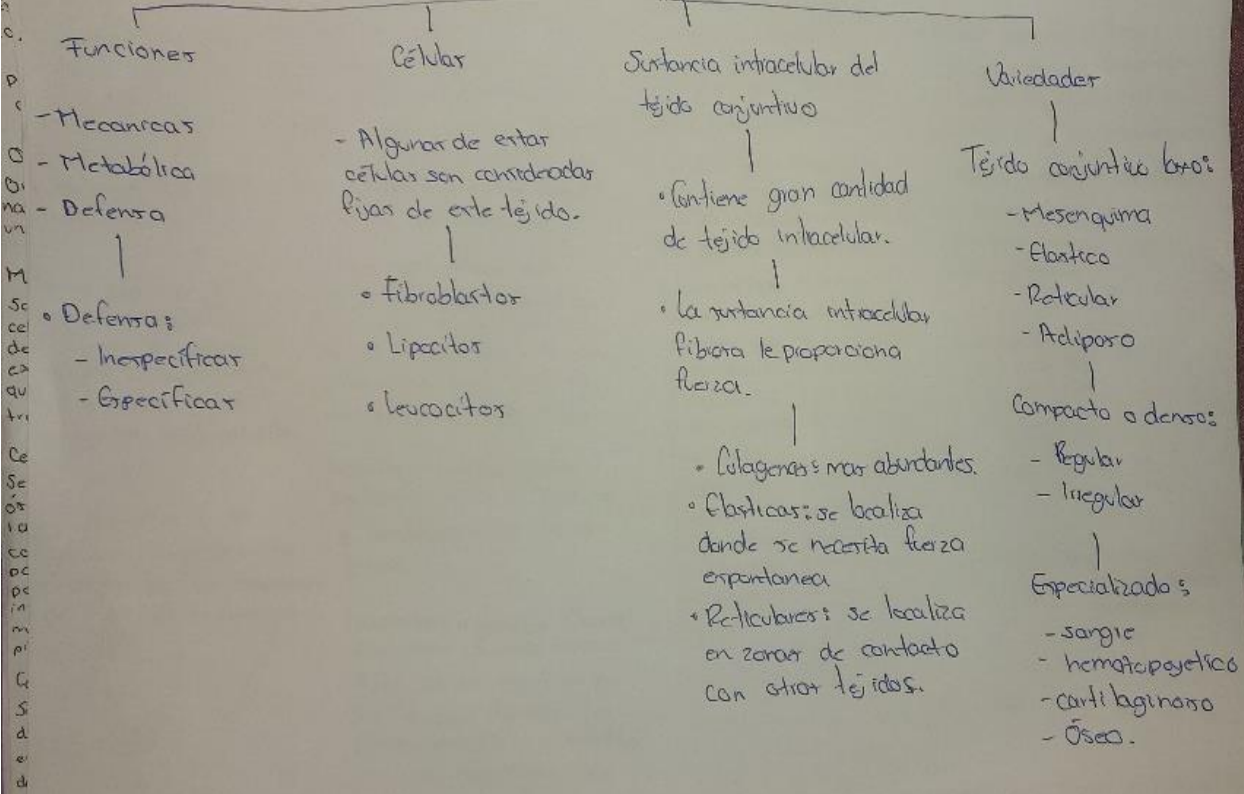 Funciones
- Mecanicas
- Metabólica
- Defensa
• Defensa:
- Inespecíficas
- Específicas
Célular
- Algunas de estas
célular son consideradas
fijas de este téjido.
• Fibroblastos
• Lipocitos
• Leucocitos
Sustancia intracelular del
téjido conjuntivo
• Contiene gran cantidad
de tejido intracelular.
• La sustancia intracelular
fibrosa le proporciona
fuerza.
• Colagenas: mas abundantes.
• Elasticas: se localiza
donde se necesita fuerza
espontanea
• Reticulares: se localiza
en zonas de contacto
con otros téjidos.
Variedades
Téjido conjuntivo laxo:
- Mesenquima
- Elastico
- Reticular
- Adiposo
Compacto o denso:
- Regular
- Irregular
Especializado:
- sangre
- hematopoyetico
- cartilaginoso
- Óseo.